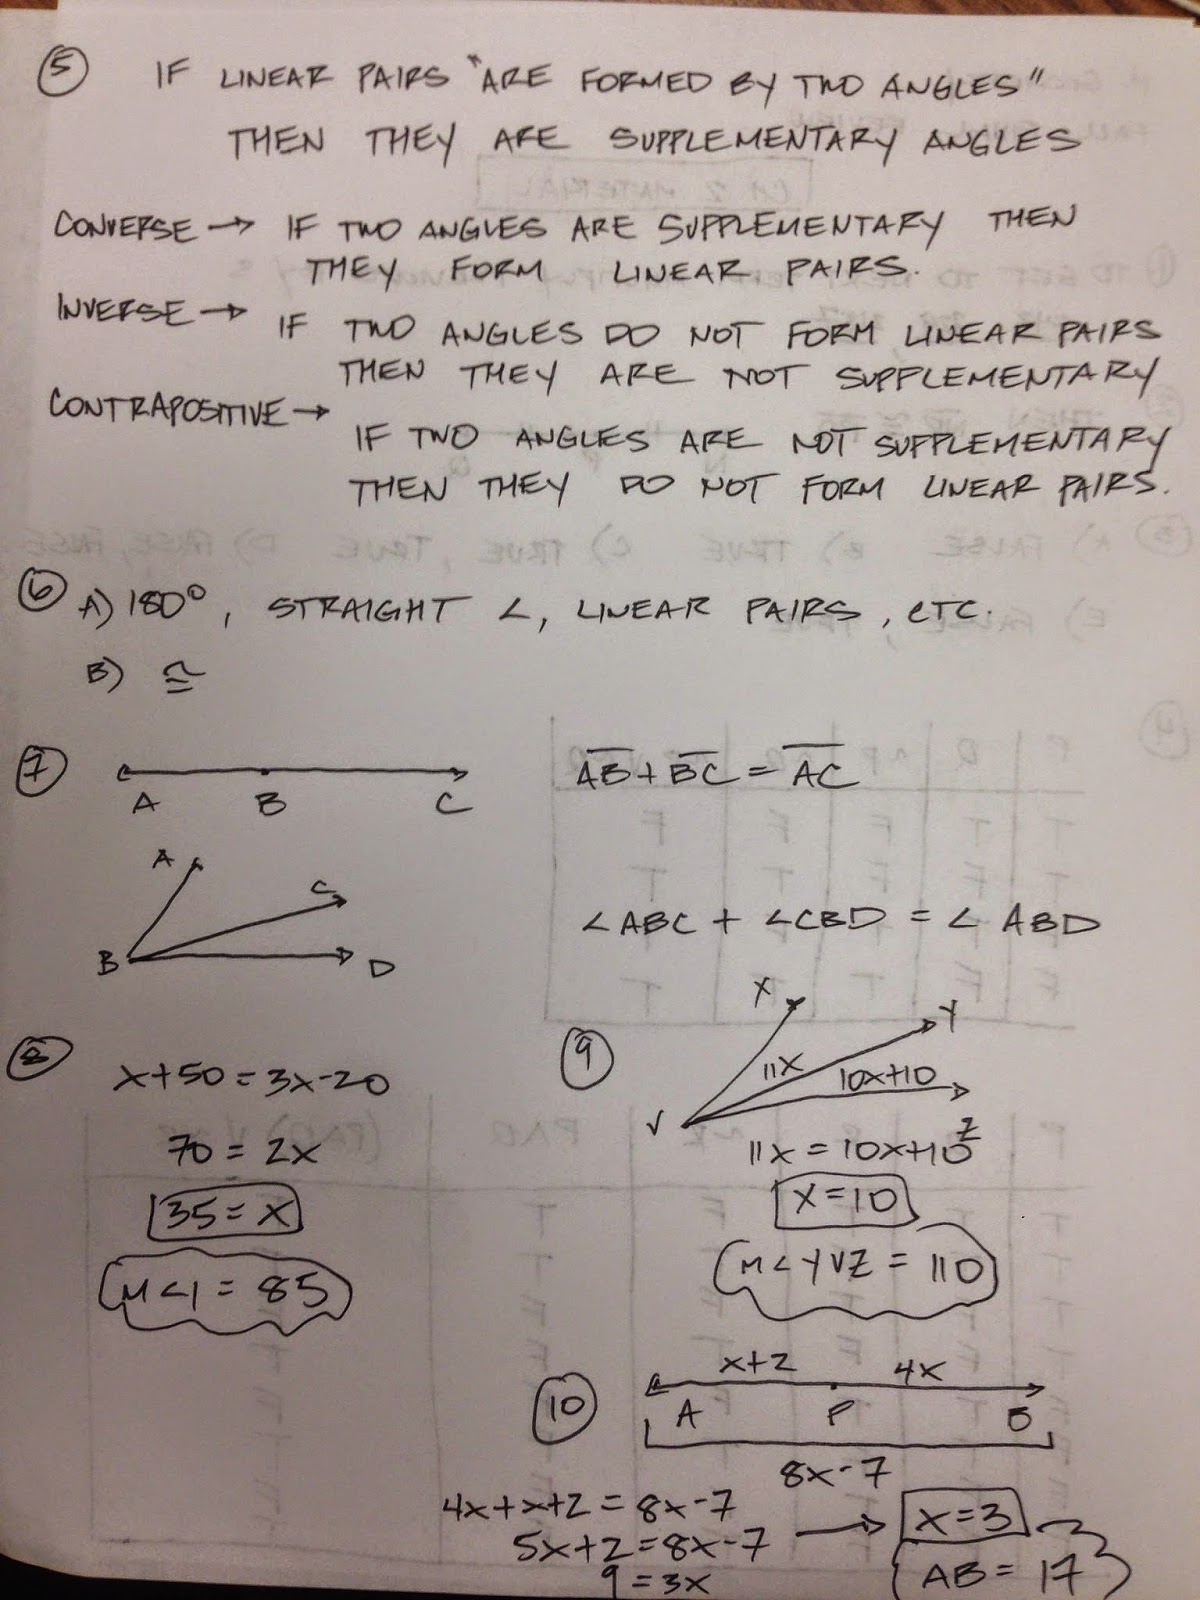 5 IF LINEAR PAIRS "ARE FORMED BY TWO ANGLES"
THEN THEY ARE SUPPLEMENTARY ANGLES
CONVERSE → IF TWO ANGLES ARE SUPPLEMENTARY THEN
THEY FORM LINEAR PAIRS.
INVERSE → IF TWO ANGLES DO NOT FORM LINEAR PAIRS
THEN THEY ARE NOT SUPPLEMENTARY
CONTRAPOSITIVE →
IF TWO ANGLES ARE NOT SUPPLEMENTARY
THEN THEY DO NOT FORM LINEAR PAIRS.
6 A) 180°, STRAIGHT ∠, LINEAR PAIRS, ETC.
B) ≅
7 A B C
A̅B̅ + B̅C̅ = A̅C̅
A
C
B
D
∠ABC + ∠CBD = ∠ABD
8 x+50 = 3x-20
70 = 2x
35 = x
M<1 = 85
9 X
Y
11x
10x+10
V
Z
11x = 10x+10
x = 10
M<YVZ = 110
10 x+2 4x
A P B
8x-7
4x+x+2 = 8x-7
5x+2 = 8x-7 → x=3
9 = 3x
AB = 17